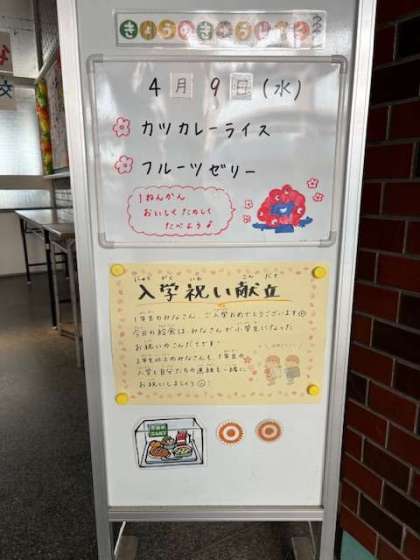 きょうのきゅうしょく
4月9日(水)
カツカレーライス
フルーツゼリー
1ねんかん
おいしく たのしく
たべよう♪
にゅう がく いわ こん だて
入学祝い献立
1年生のみなさん、ご入学おめでとうございます
今日の給食は、みなさんが小学生になった
お祝いのこんだてです。
2年生以上のみなさんも、1年生の
入学と自分たちの進級を一緒に
お祝いしましょう